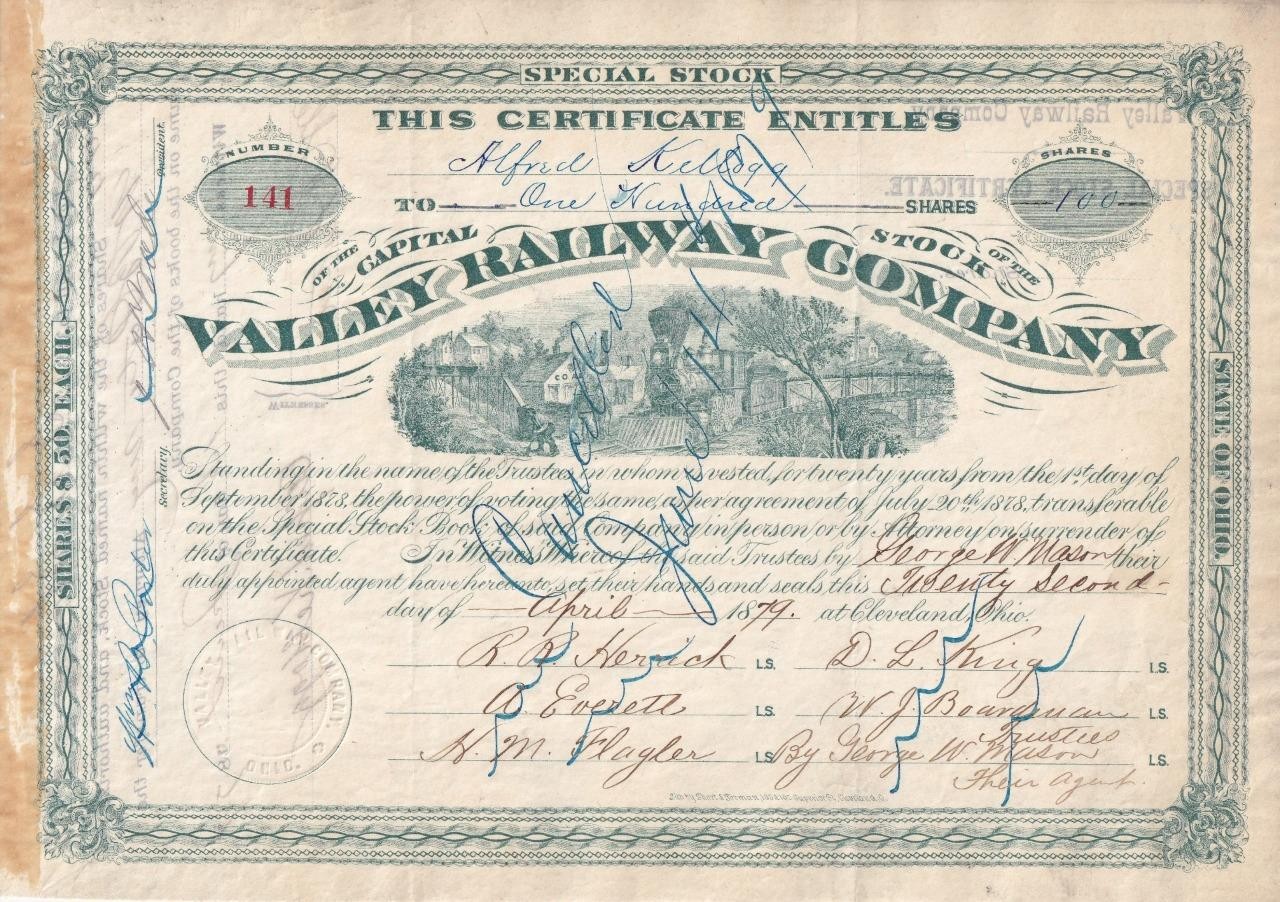 SPECIAL STOCK
THIS CERTIFICATE ENTITLES
NUMBER
141
Alfred Kellogg
SHARES
100
TO One Hundred SHARES
OF THE CAPITAL STOCK OF THE
VALLEY RAILWAY COMPANY
Standing in the name of the Trustees in whom is vested, for twenty years from the 1st day of
September 1878, the power of voting the same, as per agreement of July 20th 1878, transferable
on the Special Stock Books of said Company in person or by Attorney on surrender of
this Certificate. In Witness Whereof the said Trustees by George W. Mason their
duly appointed agent have hereunto set their hands and seals this Twenty Second
day of April 1879. at Cleveland, Ohio.
R. R. Herrick L.S. D. L. King L.S.
A. Everett L.S. W. J. Boardman L.S.
Trustees
H. M. Flagler L.S. By George W. Mason L.S.
Their Agent.
Cancelled
June 14 1879
SHARES $50. EACH.
STATE OF OHIO.
President.
Secretary.
OHIO.